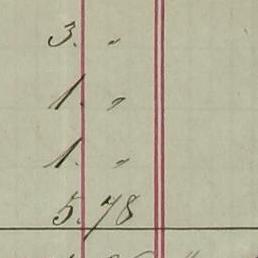 3. "
1. "
1. "
5.78